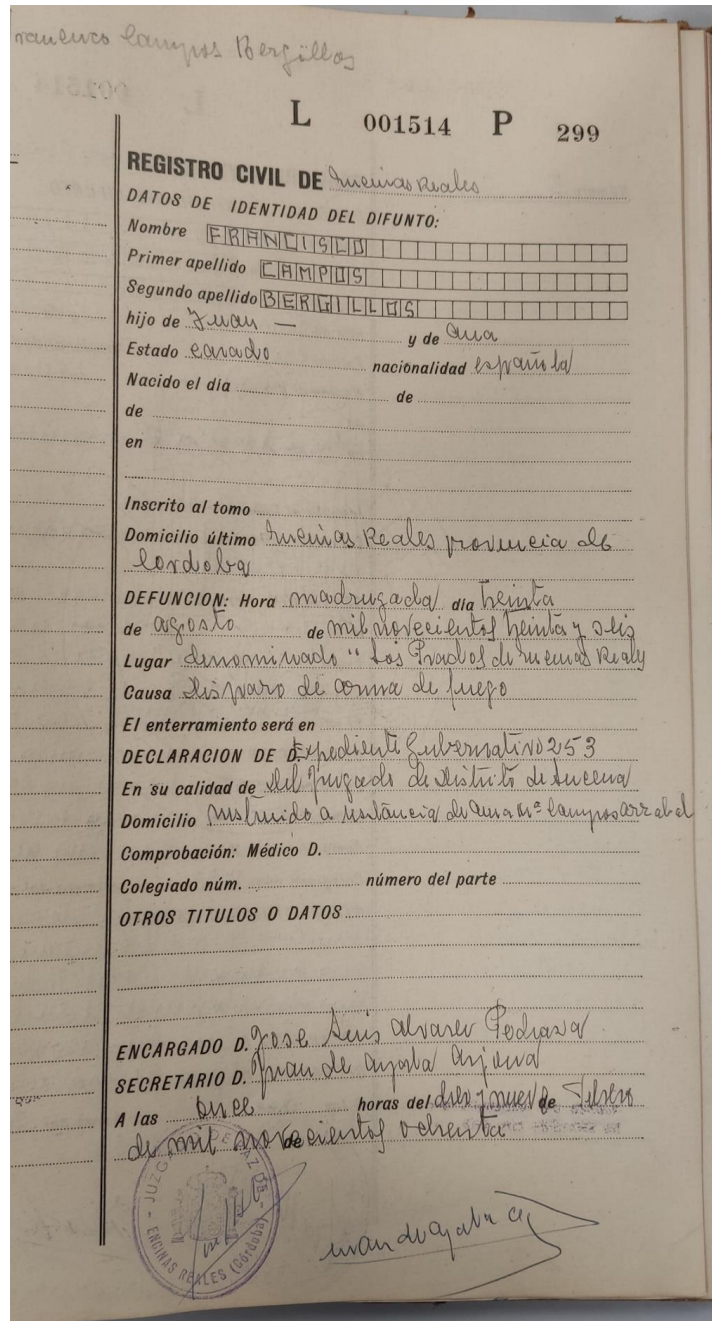 Campos Bergillos
L 001514 P 299
REGISTRO CIVIL DE Encinas Reales
DATOS DE IDENTIDAD DEL DIFUNTO:
Nombre FRANCISCO
Primer apellido CAMPOS
Segundo apellido BERGILLOS
hijo de Juan — y de Ana
Estado casado nacionalidad española
Nacido el día de
de
en
Inscrito al tomo
Domicilio último Encinas Reales provincia de
Cordoba
DEFUNCION: Hora madrugada día treinta
de agosto de mil novecientos treinta y seis
Lugar denominado "Los Prados de Encinas Reales
Causa Disparo de arma de fuego
El enterramiento será en
DECLARACION DE D. Expediente Gubernativo 253
En su calidad de del Juzgado de Distrito de Lucena
Domicilio instruido a instancia de Ana Mª Campos arrabal
Comprobación: Médico D.
Colegiado núm. número del parte
OTROS TITULOS O DATOS
ENCARGADO D. Jose Luis Alvarez Pedraza
SECRETARIO D. Juan de Ayala Arjona
A las once horas del diez y nueve de Febrero
de mil novecientos ochenta
JUZGADO DE PAZ DE
ENCINAS REALES (Córdoba)
Juan de Ayala